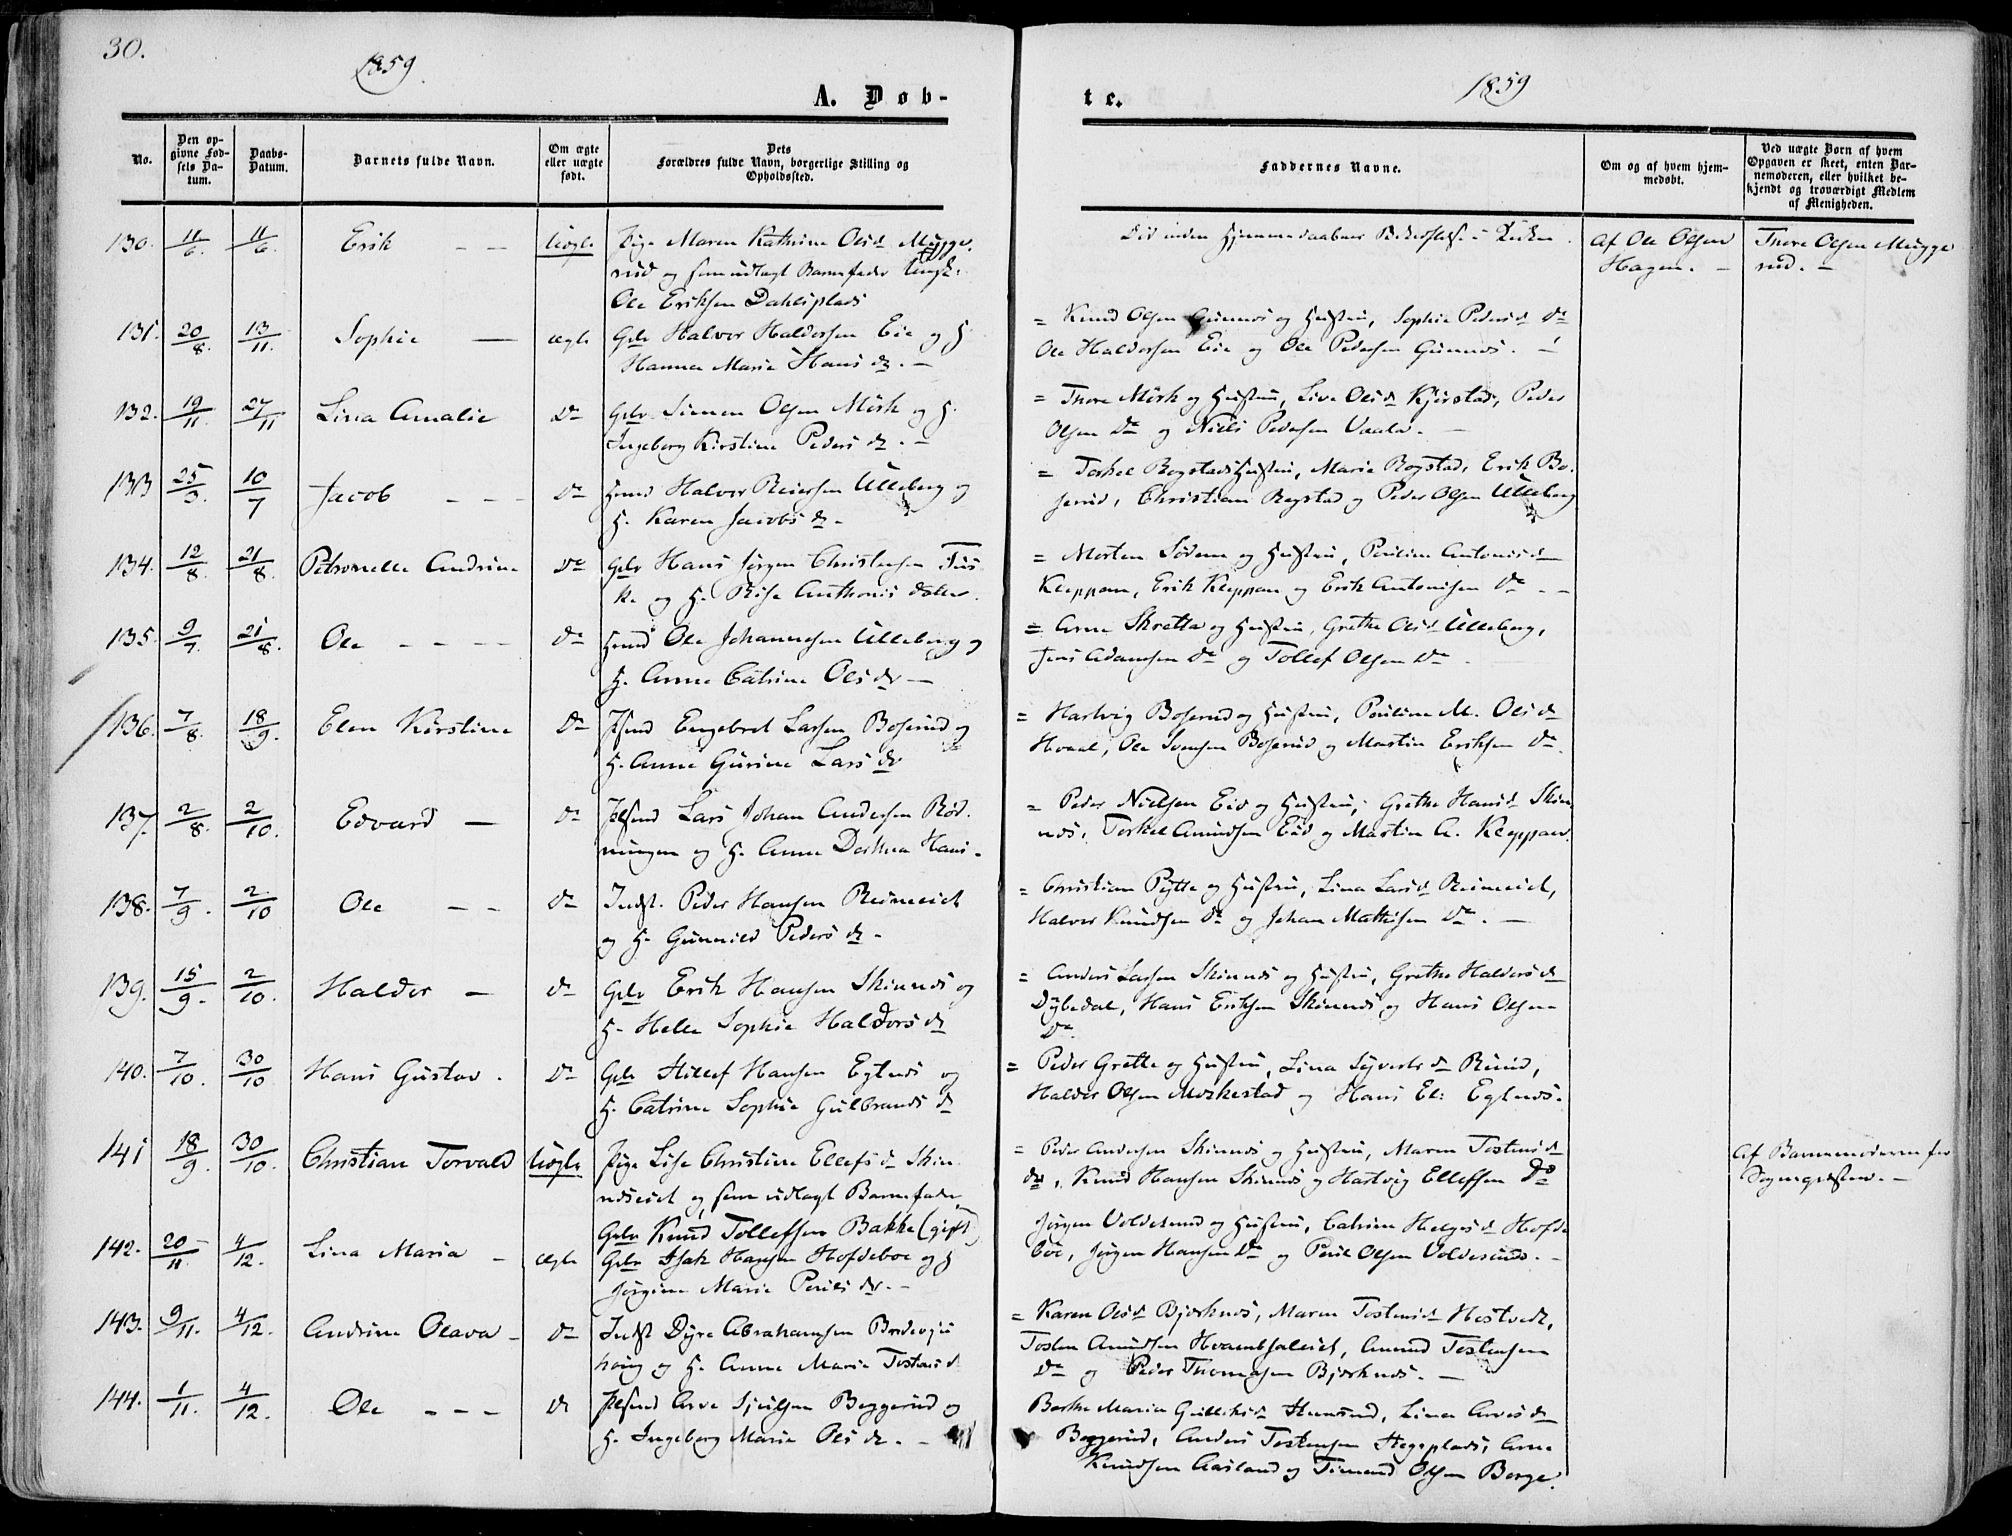 30.
1859
1859
A. Døb-
te.
No.
Den op-
givne Fød-
sels Da-
tum.
Daabs-
Datum.
Barnets fulde Navn.
Om ægte
eller uægte
født.
Dets
Forældres fulde Navn, borgerlige Stilling og
Opholdssted.
Faddernes Navne.
Om og af hvem hjem-
medøbt.
Ved uægte Børn af hvem
Opgaven er skeet, enten Bar-
nemoderen, eller hvilket be-
kjendt og troværdigt Medlem
af Menigheden.
130. 11/6. 11/6. Erik Uægte Pige Maren Kathrine Olsd Mugge-
rud og som udlagt Barnefader Ungk:
Ole Eriksen Dahlsplads
Død inden Hjemmedaabens Bekræftelse i Kirken.
Af Ole Olsen
Hagen.
Thore Olsen Mugge
rud.
131. 20/8. 13/11. Sophie ægte Gdb Halvor Haldorsen Eie og H
Hanna Maria Hans dr.
= Knud Olsen Gunnes og Hustru, Sophie Pedersd Do
Ole Haldorsen Eie og Ole Pedersen Gunnes.
132. 19/11. 27/11 Lina Amalie Do Gdb. Simen Olsen Mørk og H.
Ingeborg Kirstine Peders dr.
= Thore Mørk og Hustru, Live Olsd Kjørstad, Peder
Olsen Do og Niels Pedersen Vaala.
133 25/3. 10/7 Jacob Do Hmd Halvor Reiersen Ulleberg og
H. Karen Jacobs dr.
= Torkel Rogstads Hustru, Marie Rogstad, Erik Bo-
serud, Christian Rogstad og Peder Olsen Ulleberg
134. 12/8. 21/8. Petronelle Andrine Do Gdb Hans Jørgen Christensen Fis-
k. og H. Rise Anthonis datter.
= Morten Sødem og Hustru, Pauline Antonisd
Kleppan, Erik Kleppan og Erik Antonisen Do
135. 9/7. 21/8. Ole Do Hmd Ole Johannesen Ulleberg og
H. Anne Catrine Ols dr
= Arne Skretta og Hustru, Grethe Olsd Ulleberg,
Jens Adamsen Do og Tollef Olsen Do
136. 7/8. 18/9. Elen Kirstine Do Hsmd Engebret Larsen Boserud og
H. Anne Gurine Lars dr
= Hartvig Boserud og Hustru, Pauline M. Ols dr
Hvaal, Ole Svensen Boserud og Martin Eriksen Do.
137. 2/8. 2/10. Edvard Do Plsmd Lars Johan Andersen Rød-
ningen og H. Anne Dorthea Hans-
= Peder Nielsen Eid og Hustru, Grethe Hansd Skin-
nes, Torkel Amundsen Eid og Martin A. Kleppan.
138. 7/9. 2/10 Ole Do Indst. Peder Hansen Reineeiet
og H. Gunnild Peders dr.
= Christian Pytte og Hustru, Lina Larsd Reineeiet,
Halvor Knudsen Do og Johan Mathisen Do.
139. 15/9. 2/10. Haldor Do Gdb Erik Hansen Skinnes og
H. Helle Sophie Haldors dr
= Anders Larsen Skinnes og Hustru, Grethe Haldorsd
Dybedal, Hans Eriksen Skinnes og Hans Olsen
Do
140. 7/10. 30/10 Hans Gustav. Do Gdb Hellef Hansen Egtnes og
H. Catrine Sophie Gulbrands dr
= Peder Grette og Hustru, Lina Syverts dr Ruud,
Haldor Olsen Morkestad og Hans El: Egtnes.
141 18/9. 30/10. Christian Torvald Uægte Pige Lise Christine Ellefs dr Skin-
neseiet og som udlagt Barnefader
Gdb Knud Tollefsen Bakke (gift)
= Peder Andersen Skinnes og Hustru, Maren Tostensd
Do, Knud Hansen Skinnes og Hartvig Ellefsen Do
Af Barnemoderen for
Sognepresten.
142. 20/11. 4/12. Lina Maria ægte Gdb Isak Hansen Hofdeboe og H
Jørgine Marie Pouls dr.
Jørgen Voldesund og Hustru, Catrine Helgesd Hofde-
boe, Jørgen Hansen Do og Poul Olsen Voldesund.
143. 9/11. 4/12. Andrine Olava Do Indst Dyre Abrahamsen Bredesju
houg og H. Anne Marie Tostensd
= Karen Olsd Bjørknes, Maren Tostensd Hostvedt,
Tosten Amundsen Hvambsaleiet, Amund Tostensen
Do og Peder Thomasen Bjørknes.
144. 1/11. 4/12. Ole Do Plsmd Arve Sjulsen Beggerud og
H. Ingeborg Marie Ols dr.
Berthe Maria Gulliksd Hunsrud, Lina Arvesd
Beggerud, Anders Tostensen Hagaplads, Arne
Knudsen Aasland og Simund Olsen Berge.